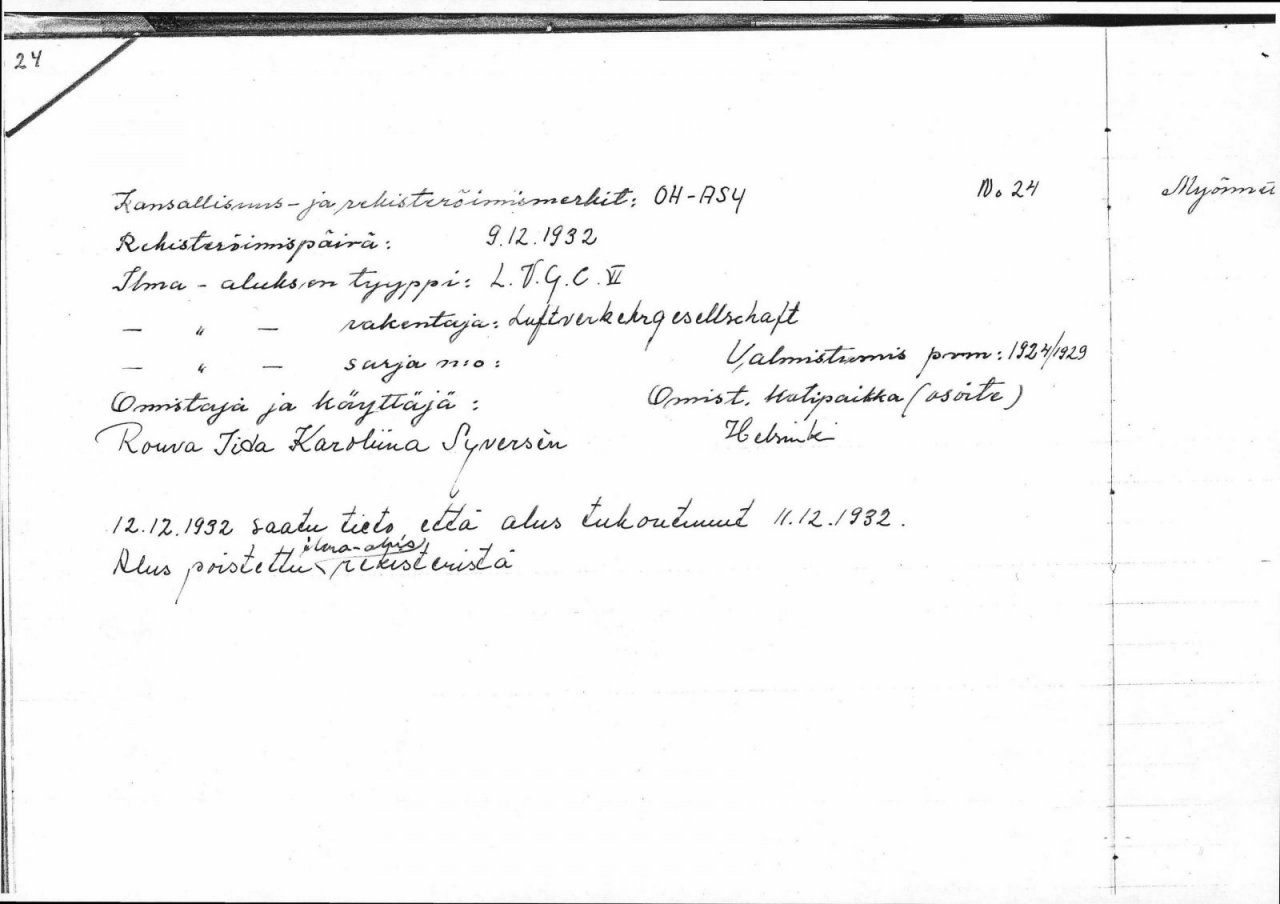 24
Kansallisuus- ja rekisteröimismerkit: OH-ASY No 24 Myönnet
Rekisteröimispäivä: 9.12.1932
Ilma-aluksen tyyppi: L.V.G.C. VI
— " — rakentaja: Luftverkehrgesellschaft
— " — sarja n:o: Valmistumis pvm: 1924/1929
Omistaja ja käyttäjä: Omist. kotipaikka (osoite)
Rouva Iida Karoliina Syversèn Helsinki
12.12.1932 saatu tieto, että alus tuhoutunut 11.12.1932.
ilma-alus
Alus poistettu rekisteristä